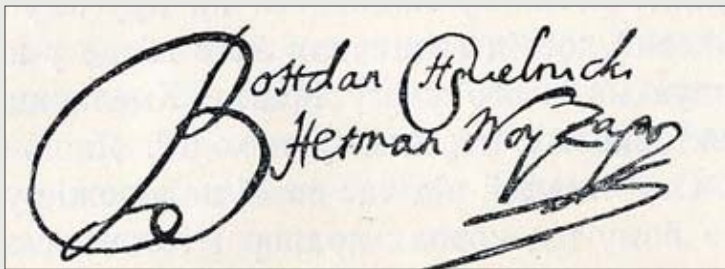 Bohdan Chmielnicki
Hetman Woy Zapor